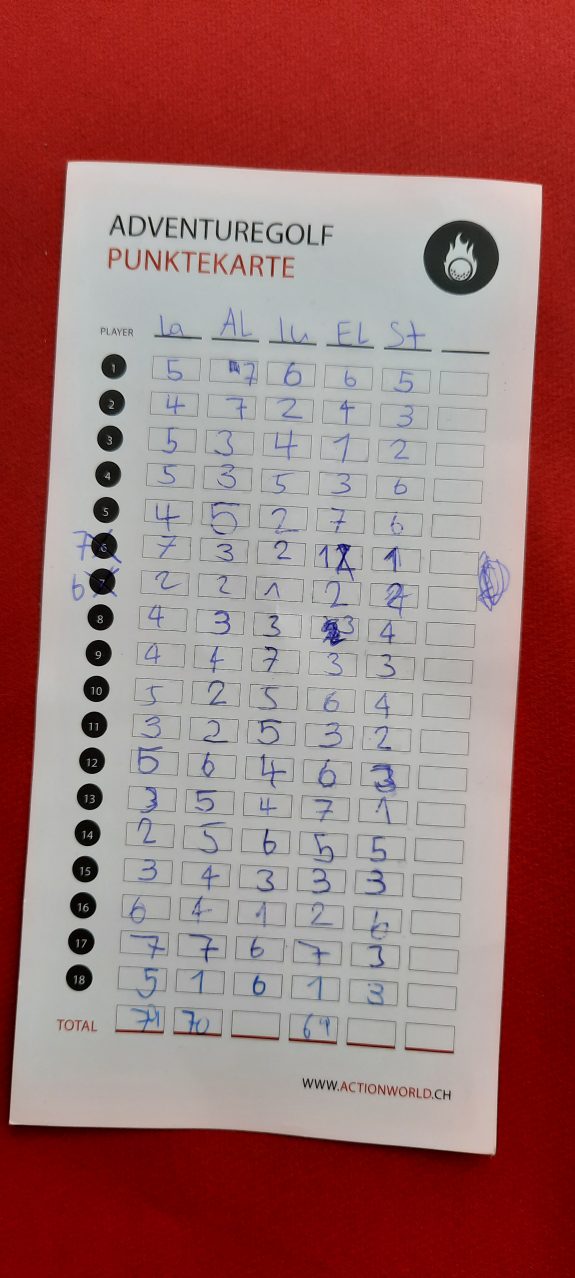 ADVENTUREGOLF
PUNKTEKARTE
PLAYER La AL Lu EL St
1 5 7 6 6 5
2 4 7 2 4 3
3 5 3 4 1 2
4 5 3 5 3 6
5 4 5 2 7 6
7 6 7 3 2 1 1
6 7 2 2 1 2 2
8 4 3 3 3 4
9 4 4 7 3 3
10 5 2 5 6 4
11 3 2 5 3 2
12 5 6 4 6 3
13 3 5 4 7 1
14 2 5 6 5 5
15 3 4 3 3 3
16 6 4 1 2 6
17 7 7 6 7 3
18 5 1 6 1 3
TOTAL 79 70 69
WWW.ACTIONWORLD.CH